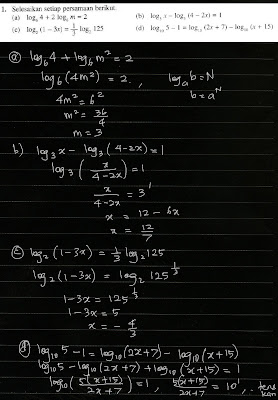 1. Selesaikan setiap persamaan berikut.
(a) log₆ 4 + 2 log₆ m = 2 (b) log₃ x − log₃ (4 − 2x) = 1
(c) log₂ (1 − 3x) = 1/3 log₂ 125 (d) log₁₀ 5 − 1 = log₁₀ (2x + 7) − log₁₀ (x + 15)
(a) log₆4 + log₆m² = 2
log₆(4m²) = 2. , logₐb = N
b = aᴺ
4m² = 6²
m² = 36/4
m = 3
b) log₃x − log₃(4−2x) = 1
log₃(x/(4−2x)) = 1
x/(4−2x) = 3¹
x = 12 − 6x
x = 12/7
(c) log₂(1−3x) = 1/3 log₂125
log₂(1−3x) = log₂ 125^(1/3)
1−3x = 125^(1/3)
1−3x = 5
x = −4/3
(d) log₁₀5 − 1 = log₁₀(2x+7) − log₁₀(x+15)
log₁₀5 − log₁₀(2x+7) + log₁₀(x+15) = 1
log₁₀(5(x+15)/(2x+7)) = 1 , 5(x+15)/(2x+7) = 10¹,